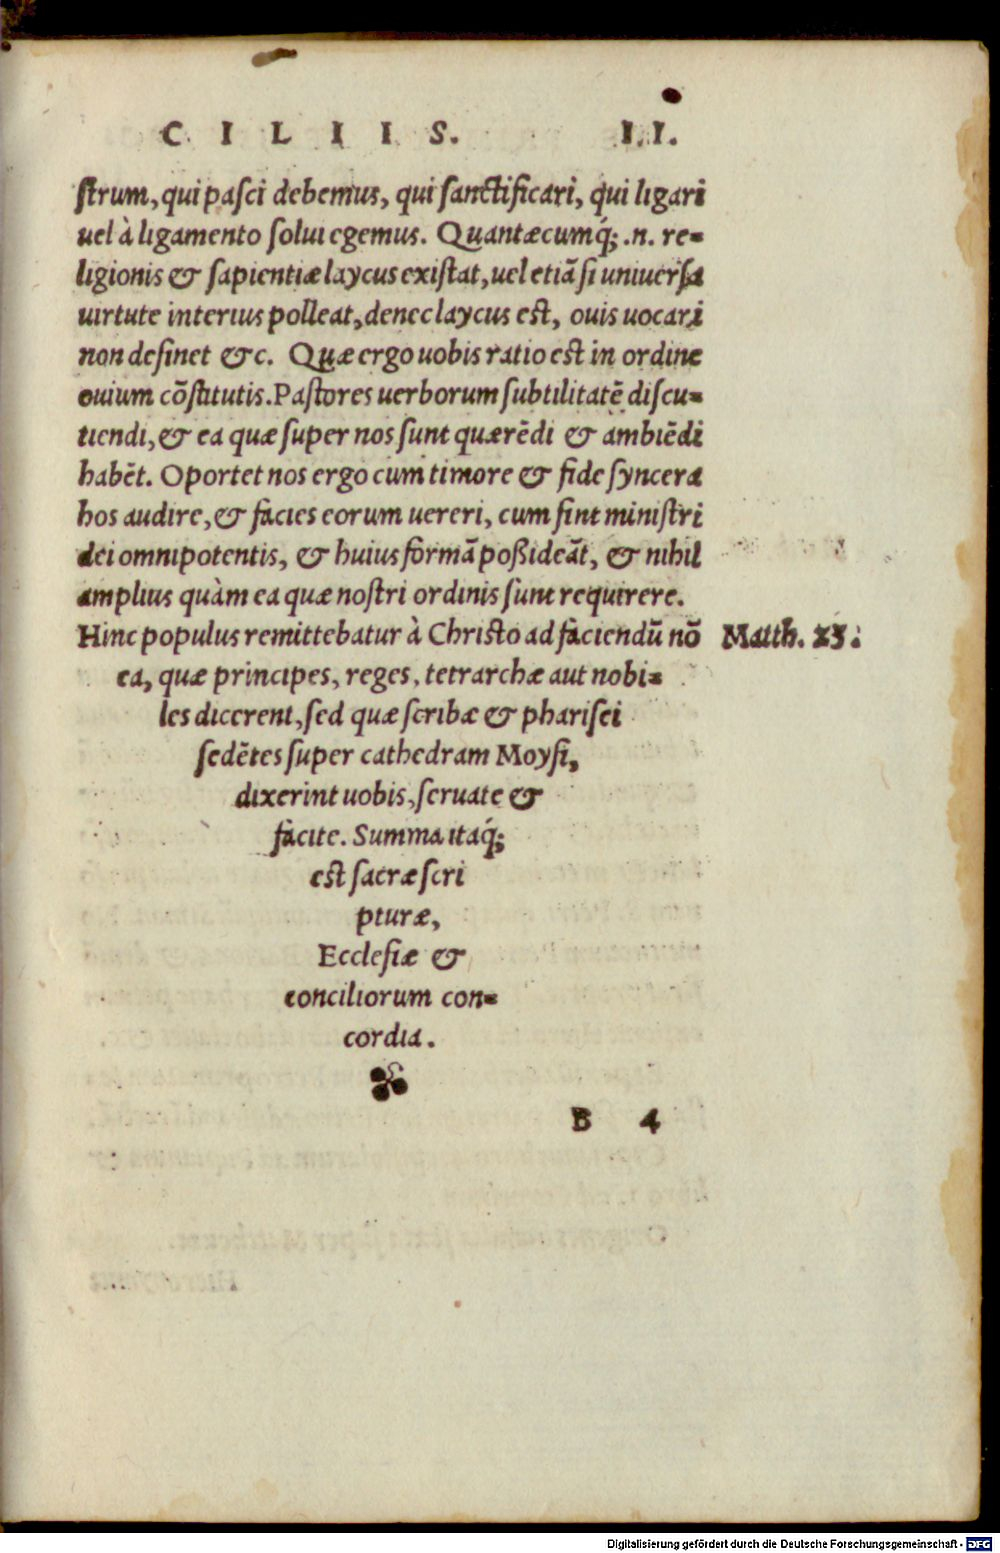 CILIIS. II.
strum, qui pasci debemus, qui sanctificari, qui ligari
uel à ligamento solui egemus. Quantæcumq́; .n. re-
ligionis & sapientiæ laycus existat, uel etiã si uniuersa
uirtute interius polleat, denec laycus est, ouis uocari
non desinet &c. Quæ ergo uobis ratio est in ordine
ouium cõstitutis. Pastores uerborum subtilitatẽ discu-
tiendi, & ea quæ super nos sunt quærẽdi & ambiẽdi
habẽt. Oportet nos ergo cum timore & fide syncera
hos audire, & facies eorum uereri, cum sint ministri
dei omnipotentis, & huius formã possideãt, & nihil
amplius quàm ea quæ nostri ordinis sunt requirere.
Hinc populus remittebatur à Christo ad faciendũ nõ Matth. 23.
ea, quæ principes, reges, tetrarchæ aut nobi-
les dicerent, sed quæ scribæ & pharisei
sedẽtes super cathedram Moysi,
dixerint uobis, seruate &
facite. Summa itaq́;
est sacræ scri
pturæ,
Ecclesiæ &
conciliorum con-
cordia.
B 4
Digitalisierung gefördert durch die Deutsche Forschungsgemeinschaft - DFG